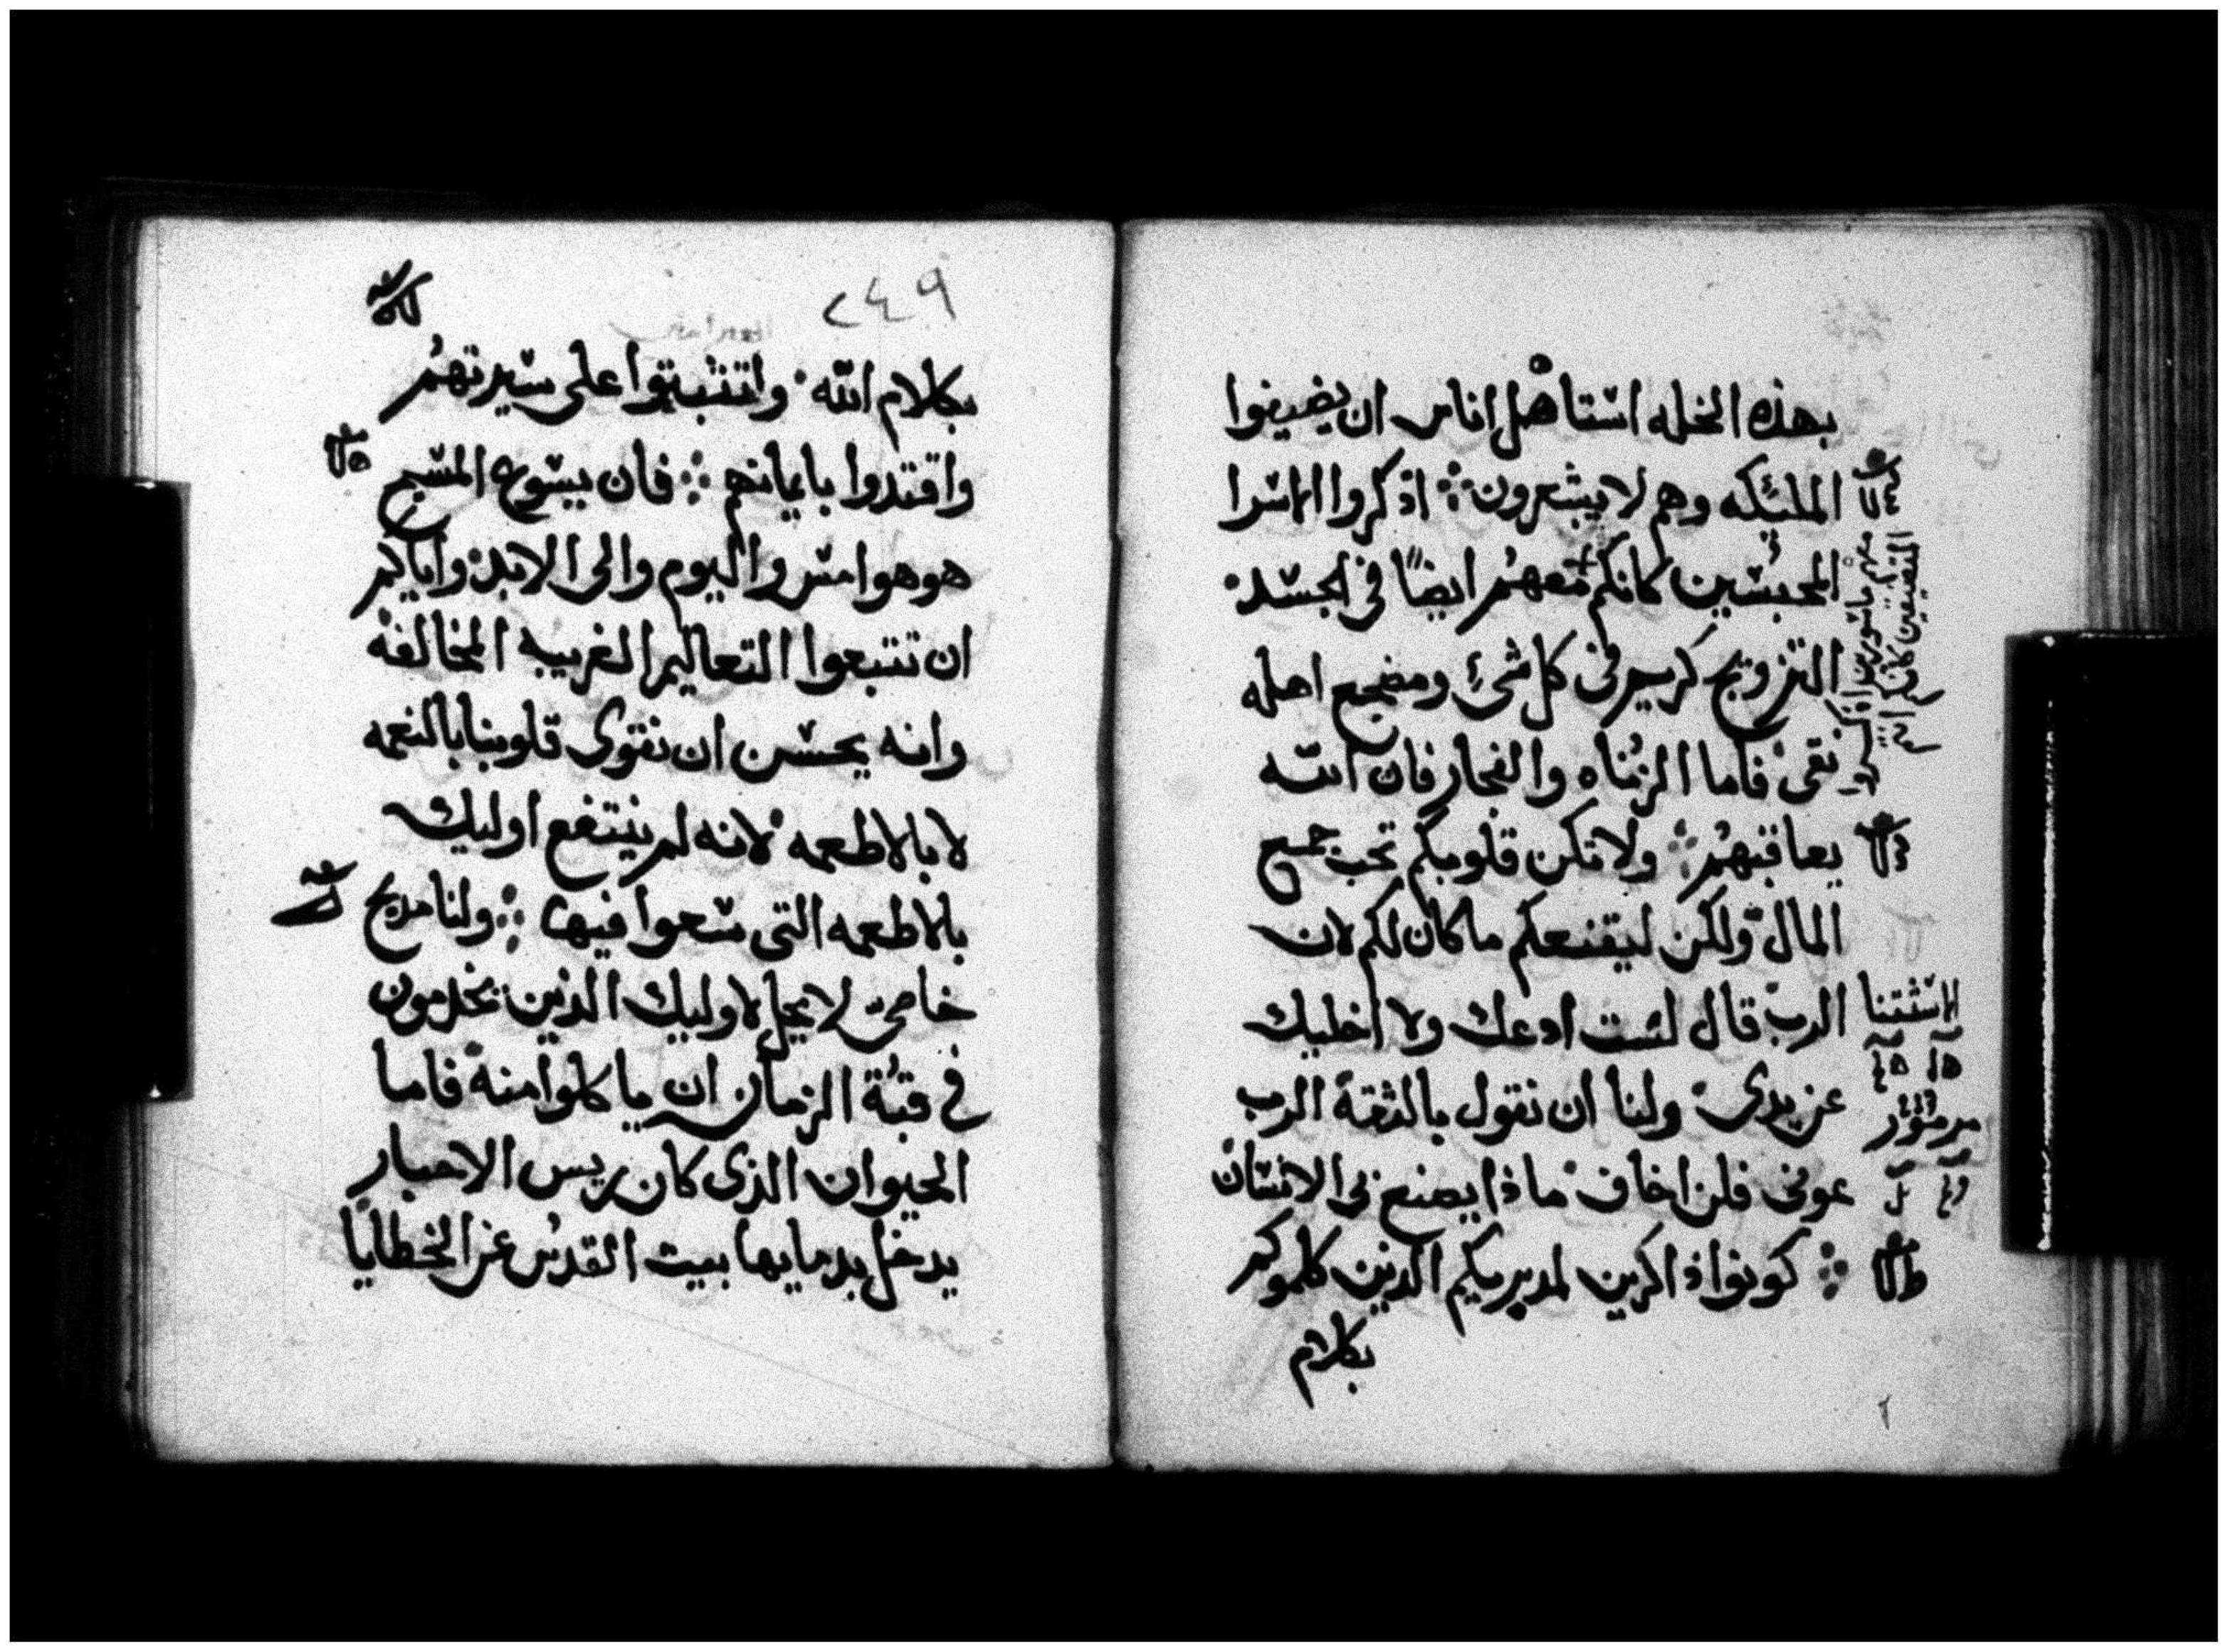 بهذه الخله استاهل اناس ان يضيفوا
الملئكه وهم لا يشعرون ⁘ اذكروا الاسرا
المحبسين كانكم معهم ايضًا في الجسد
التزويج كريم في كل شئ ومضجع اهله
نقى فاما الزناه والفجار فان الله
يعاقبهم ⁘ ولا تكن قلوبكم تحب جميع
المال ولكن ليقنعكم ما كان لكم لان
الرب قال لست ادعك ولا اخليك
من يدى ولنا ان نقول بالثقة الرب
عونى فلن اخاف ماذا يصنع بى الانسان
⁘ كونوا ذاكرين لمدبريكم الذين كلموكم
بكلام
المتضيقين كانكم
الاستثنا
مزمور
٢٤٩
العبرانيين
بكلام الله واتثبتوا على سيرتهم
واقتدوا بايمانهم ⁘ فان يسوع المسيح
هو هو امس واليوم والى الابد واياكم
ان تتبعوا التعاليم الغريبه المخالفه
وانه يحسن ان نقوى قلوبنا بالنعمه
لا بالاطعمه لانه لم ينتفع اوليك
بالاطعمه التى سعوا فيها ⁘ ولنا مدبح
خاصى لا يحل لاوليك الذين يخدمون
في قبة الزمان ان ياكلوا منه فاما
الحيوان الذى كان ريس الاحبار
يدخل بدمايها بيت القدس عن الخطايا